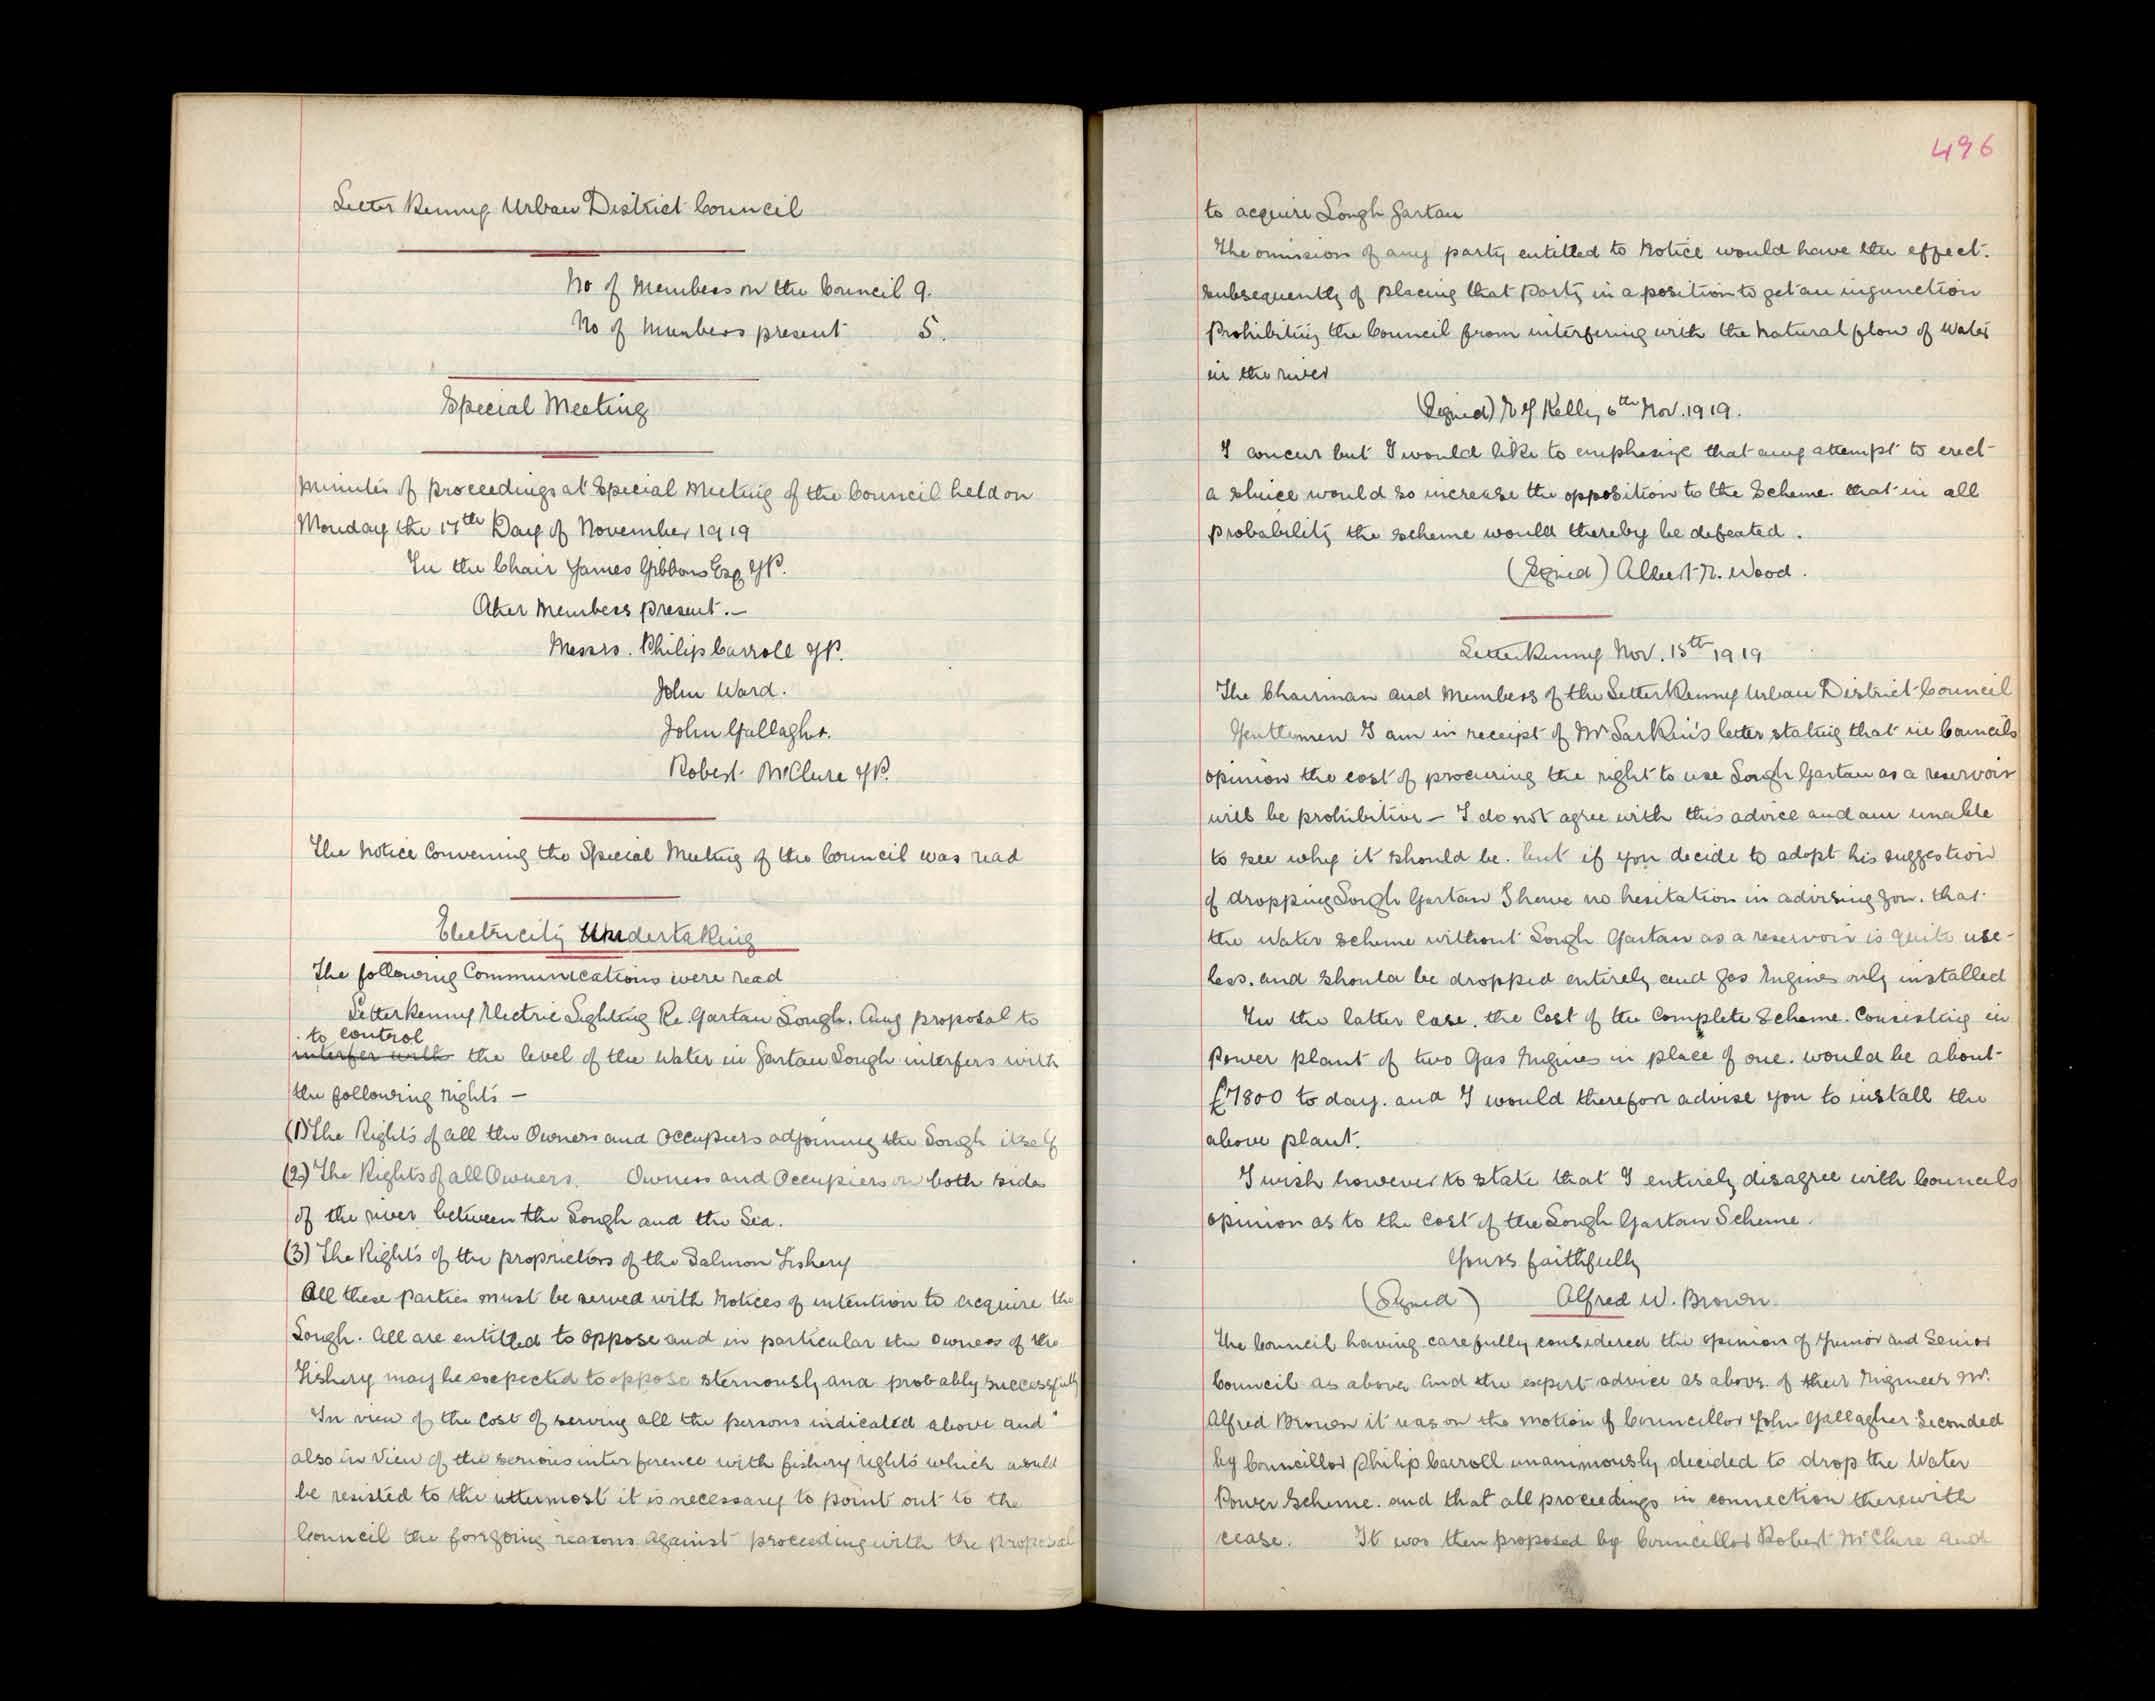 Letter Kenny Urban District Council
No of Members on the Council 9.
No of Members present 5.
Special Meeting
Minutes of proceedings at Special Meeting of the Council held on
Monday the 17th Day of November 1919
In the Chair James Gibbons Esq JP.
Other Members present.—
Messrs. Philip Carroll JP.
John Ward.
John Gallagher.
Robert McClure JP.
The Notice Convening the Special Meeting of the Council was read
Electricity Undertaking
The following Communications were read
Letterkenny Electric Lighting Re. Gartan Lough. Any proposal to
to control
interfer with the level of the water in Gartan Lough interfers with
the following rights —
(1) The Rights of all the Owners and Occupiers adjoining the Lough itself
(2) The Rights of all Owners. Owners and Occupiers on both sides
of the river between the Lough and the Sea.
(3) The Rights of the proprietors of the Salmon Fishery
All these parties must be served with Notices of intention to acquire the
Lough. All are entitled to oppose and in particular the owners of the
Fishery may be expected to oppose sternously and probably successfully
In view of the cost of serving all the persons indicated above and
also in view of the serious interference with fishery rights which would
be resisted to the uttermost it is necessary to point out to the
Council the foregoing reasons against proceeding with the proposal
496
to acquire Lough Gartan
The omission of any party entitled to Notice would have the effect.
subsequently of placing that party in a position to get an injunction
Prohibiting the Council from interfering with the Natural flow of Water
in the river
(Signed) Kelly 6th Nov. 1919.
I concur but I would like to emphasize that any attempt to erect
a sluice would so increase the opposition to the Scheme. that in all
probability the scheme would thereby be defeated.
(Signed) Albert Wood.
LetterKenny Nov. 15th 1919
The Chairman and Members of the LetterKenny Urban District Council
Gentlemen I am in receipt of Mr Larkin's letter stating that in Councils
opinion the cost of procuring the right to use Lough Gartan as a reservoir
will be prohibitive — I do not agree with this advice and am unable
to see why it should be. but if you decide to adopt his suggestion
of dropping Lough Gartan I have no hesitation in advising you. that
the Water Scheme without Lough Gartan as a reservoir is quite use-
less. and should be dropped entirely and gas Engines only installed
In the latter case. the Cost of the Complete Scheme. Consisting in
Power plant of two Gas Engines in place of one. would be about
£7800 to day. and I would therefor advise you to install the
above plant.
I wish however to state that I entirely disagree with Councils
opinion as to the cost of the Lough Gartan Scheme.
Yours faithfully
(Signed) Alfred W. Brown.
The Council having carefully considered the opinion of Junior and Senior
Council as above and the expert advice as above. of their Engineer Mr.
Alfred Brown it was on the motion of Councillor John Gallagher seconded
by Councillor Philip Carroll unanimously decided to drop the Water
Power Scheme. and that all proceedings in connection therewith
cease. It was then proposed by Councillor Robert McClure and